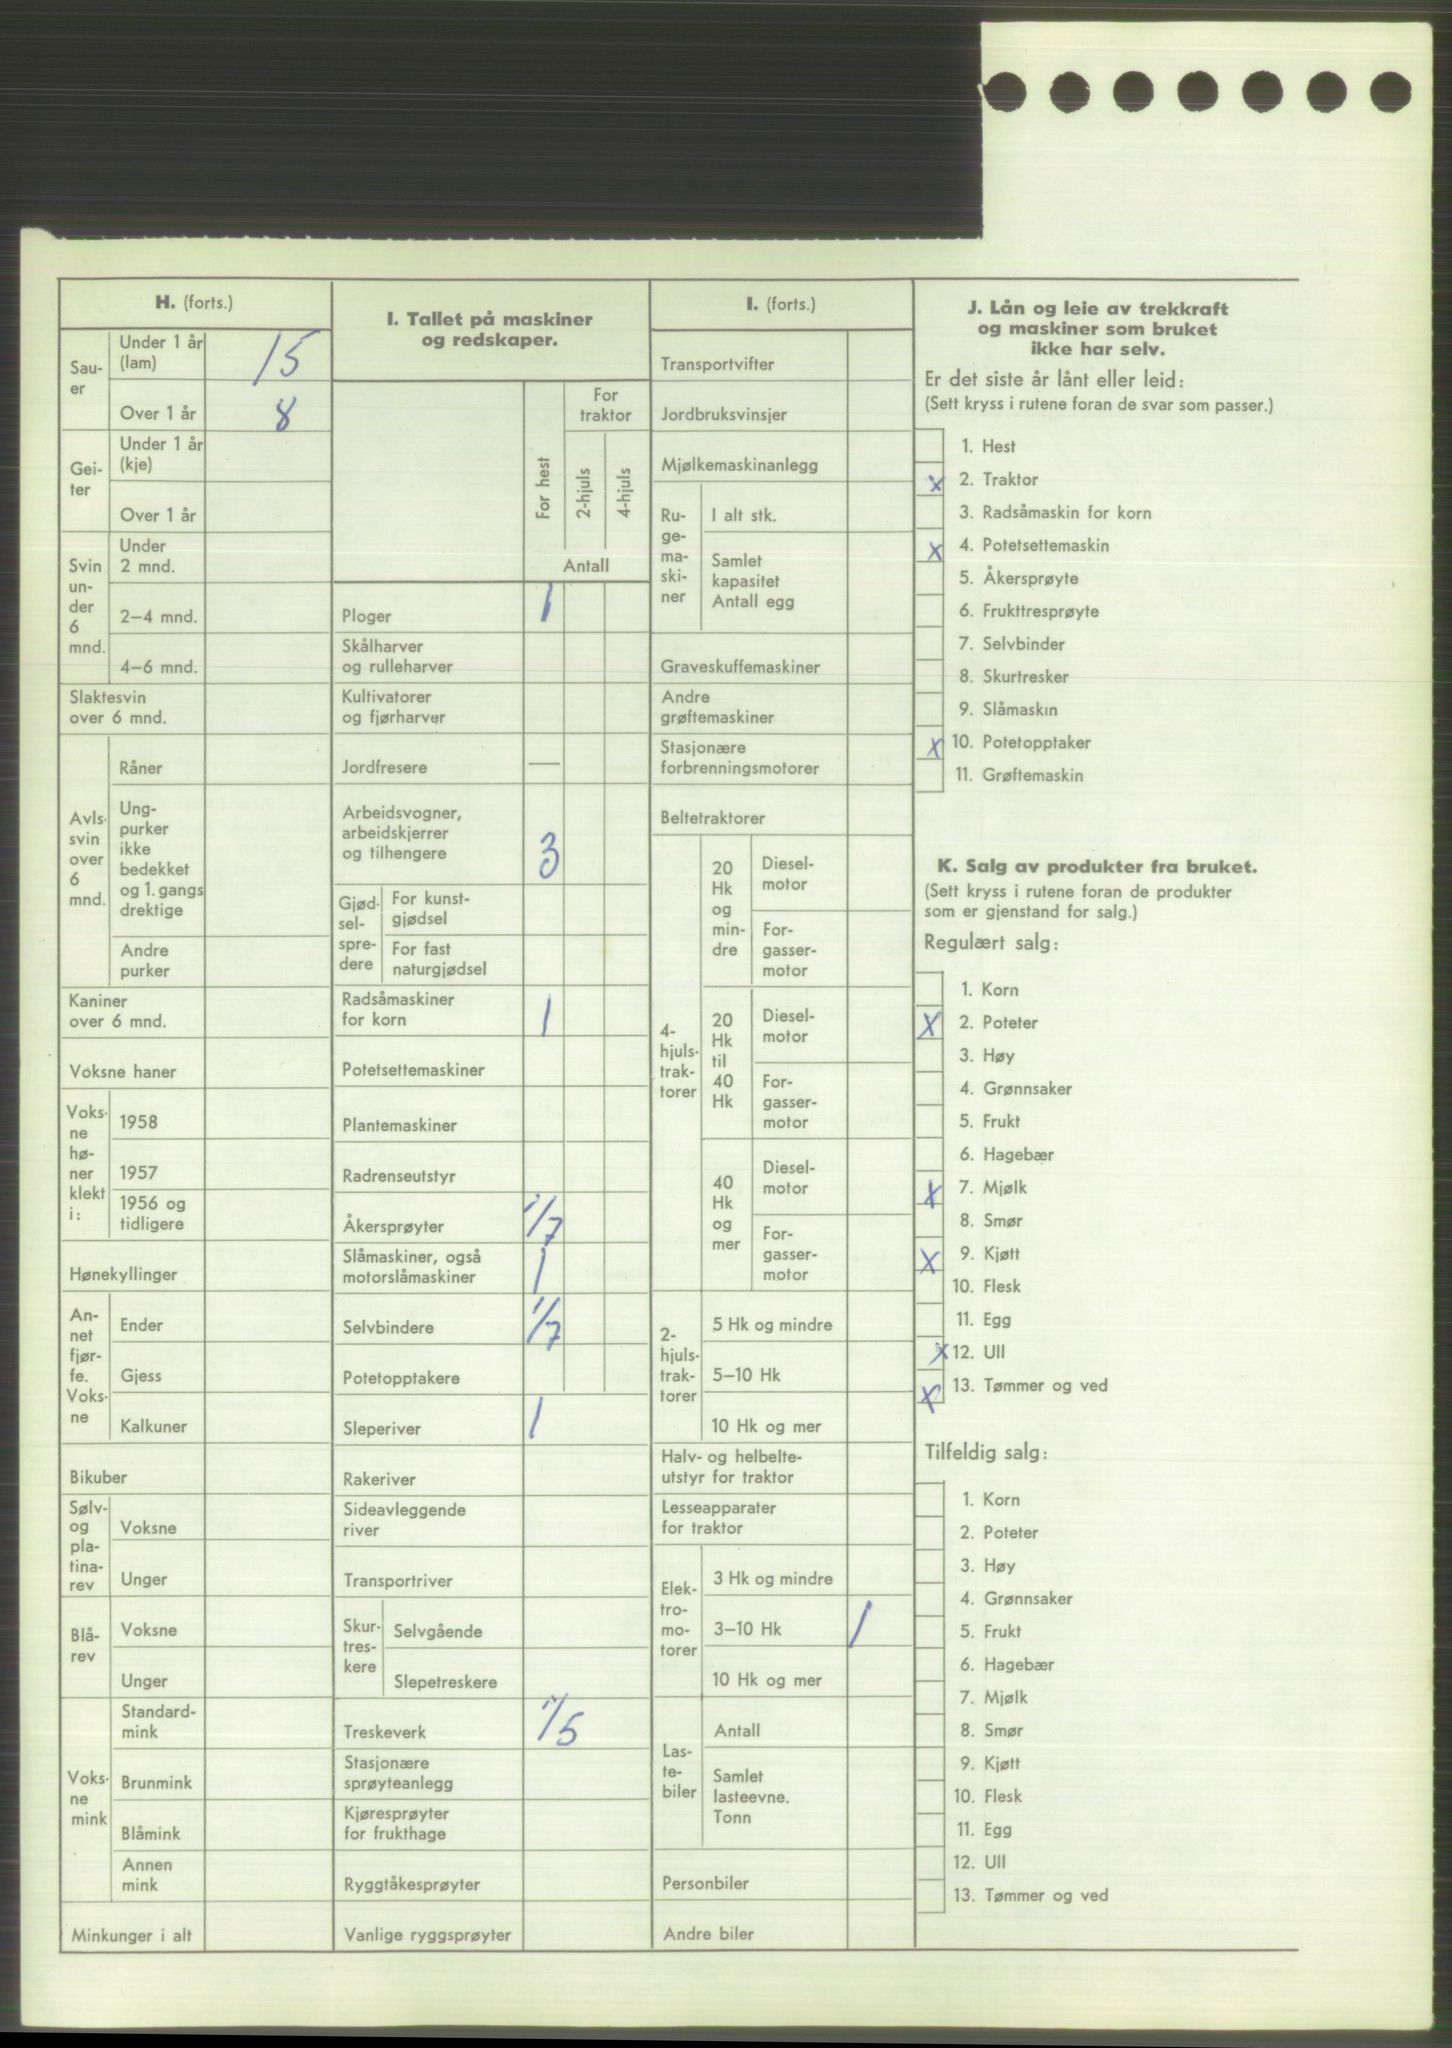 H. (forts.)
Sau-
er
Under 1 år
(lam) 15
Over 1 år 8
Gei-
ter
Under 1 år
(kje)
Over 1 år
Svin
un-
der
6
mnd.
Under
2 mnd.
2–4 mnd.
4–6 mnd.
Slaktesvin
over 6 mnd.
Avls-
svin
over
6
mnd.
Råner
Ung-
purker
ikke
bedekket
og 1. gangs
drektige
Andre
purker
Kaniner
over 6 mnd.
Voksne haner
Voks-
ne
hø-
ner
klekt
i:
1958
1957
1956 og
tidligere
Hønekyllinger
An-
net
fjør-
fe.
Voks-
ne
Ender
Gjess
Kalkuner
Bikuber
Sølv-
og
pla-
tina-
rev
Voksne
Unger
Blå-
rev
Voksne
Unger
Voks-
ne
mink
Standard-
mink
Brunmink
Blåmink
Annen
mink
Minkunger i alt
I. Tallet på maskiner
og redskaper.
For hest
For
traktor
2-hjuls
4-hjuls
Antall
Ploger 1
Skålharver
og rulleharver
Kultivatorer
og fjørharver
Jordfresere —
Arbeidsvogner,
arbeidskjerrer
og tilhengere 3
Gjød-
sel-
spre-
dere
For kunst-
gjødsel
For fast
naturgjødsel
Radsåmaskiner
for korn 1
Potetsettemaskiner
Plantemaskiner
Radrenseutstyr
Åkersprøyter 1/7
Slåmaskiner, også
motorslåmaskiner 1
Selvbindere 1/7
Potetopptakere
Sleperiver 1
Rakeriver
Sideavleggende
river
Transportriver
Skur-
tres-
kere
Selvgående
Slepetreskere
Treskeverk 1/5
Stasjonære
sprøyteanlegg
Kjøresprøyter
for frukthage
Ryggtåkesprøyter
Vanlige ryggsprøyter
I. (forts.)
Transportvifter
Jordbruksvinsjer
Mjølkemaskinanlegg
Ru-
ge-
ma-
ski-
ner
I alt stk.
Samlet
kapasitet
Antall egg
Graveskuffemaskiner
Andre
grøftemaskiner
Stasjonære
forbrenningsmotorer
Beltetraktorer
4-
hjuls-
trak-
torer
20
Hk
og
min-
dre
Diesel-
motor
For-
gasser-
motor
20
Hk
til
40
Hk
Diesel-
motor
For-
gasser-
motor
40
Hk
og
mer
Diesel-
motor
For-
gasser-
motor
2-
hjuls-
trak-
torer
5 Hk og mindre
5–10 Hk
10 Hk og mer
Halv- og helbelte-
utstyr for traktor
Lesseapparater
for traktor
Elek-
tro-
mo-
torer
3 Hk og mindre
3–10 Hk 1
10 Hk og mer
Las-
te-
biler
Antall
Samlet
lasteevne.
Tonn
Personbiler
Andre biler
J. Lån og leie av trekkraft
og maskiner som bruket
ikke har selv.
Er det siste år lånt eller leid:
(Sett kryss i rutene foran de svar som passer.)
1. Hest
x 2. Traktor
3. Radsåmaskin for korn
x 4. Potetsettemaskin
5. Åkersprøyte
6. Frukttresprøyte
7. Selvbinder
8. Skurtresker
9. Slåmaskin
x 10. Potetopptaker
11. Grøftemaskin
K. Salg av produkter fra bruket.
(Sett kryss i rutene foran de produkter
som er gjenstand for salg.)
Regulært salg:
1. Korn
x 2. Poteter
3. Høy
4. Grønnsaker
5. Frukt
6. Hagebær
x 7. Mjølk
8. Smør
x 9. Kjøtt
10. Flesk
11. Egg
x 12. Ull
x 13. Tømmer og ved
Tilfeldig salg:
1. Korn
2. Poteter
3. Høy
4. Grønnsaker
5. Frukt
6. Hagebær
7. Mjølk
8. Smør
9. Kjøtt
10. Flesk
11. Egg
12. Ull
13. Tømmer og ved